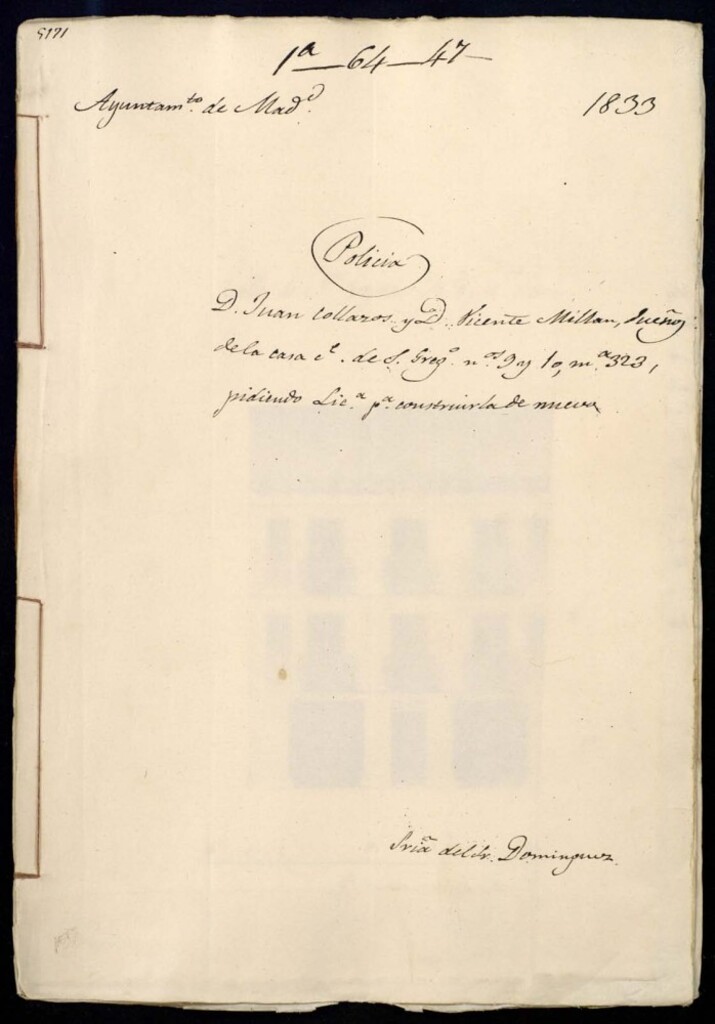 5171
1ª — 64 — 47 —
Ayuntam.to de Mad.d
1833
Policia
D. Juan Collazos y D.n Vicente Millan, dueños
de la casa c.e de S. Greg.o n.os 9 y 10, m.a 323,
pidiendo Lic.a p.a construirla de nueva
Sria del Sr. Dominguez